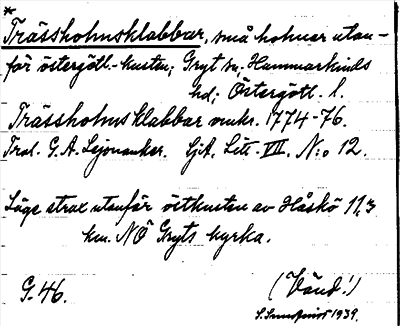 *
Trässholmsklabbar, små holmar utan-
för östergötl.-kusten; Gryt sn. Hammarkinds
hd; Östergötl. l.
Trässholmsklabbar omkr. 1774-76.
Trol. G. A. Lejonanker. GjA. Litt. VII. N:o 12.
Läge strax utanför östkusten av Håskö 11,3
km. NÖ Gryts kyrka.
G. 46. (Vänd!)
1939.